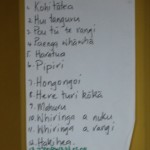 1. Kohitātea
2. Hui tanguru
3. Pou tū te rangi
4. Paenga whāwhā
5. Haratua
6. Pipiri
7. Hongongoi
8. Here turi kōkā
9. Mahuru
10. Whiringa a nuku
11. Whiringa a rangi
12. Hakihea